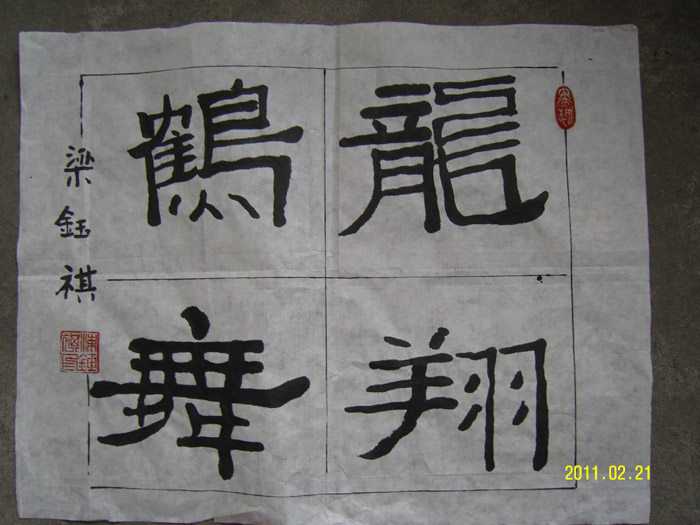 龍翔
鶴舞
梁鈺祺
2011.02.21